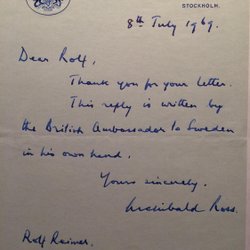 STOCKHOLM.
8th July 1969.
Dear Rolf,
Thank you for your letter.
This reply is written by
the British Ambassador to Sweden
in his own hand.
Yours sincerely,
Archibald Ross.
Rolf Reimer.